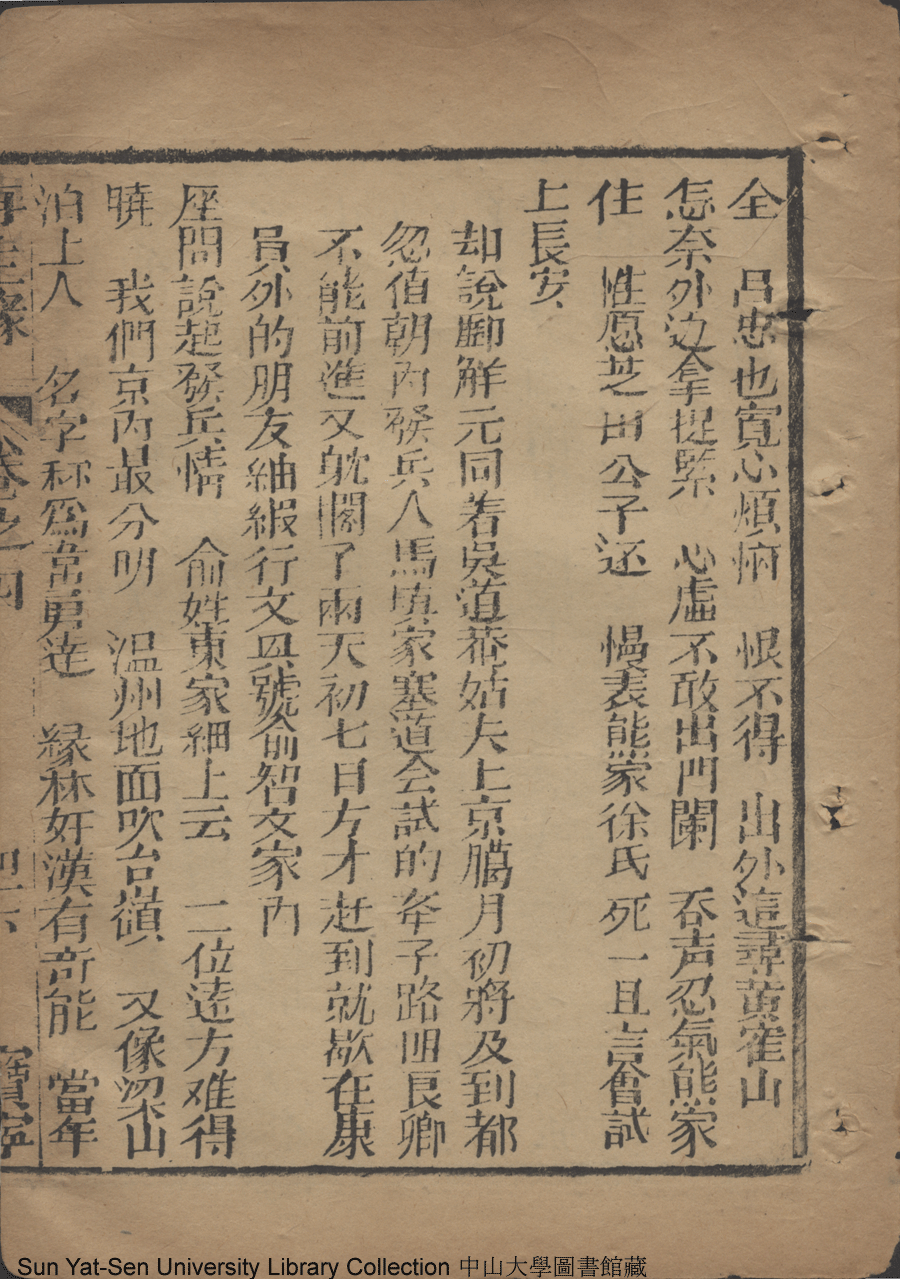 全　呂忠也寬心煩惱　恨不得　出外追尋黃雀山
怎奈外边拿提緊　心虛不敢出門闌　吞声忍氣熊家
住　性急芝田公子还　慢表熊家徐氏死　一且言奮試
上長安
却說酈解元同着吳道菴姑夫上京臈月初將及到都
忽值朝內發兵人馬填家塞道会試的牽子路明良卿
不能前進又躭閣了両天初七日方才赶到就歇在康
員外的朋友紬緞行文具號俞智文家內
座間說起發兵情　俞姓東家細上云　二位遠方难得
曉　我們京內最分明　温州地面吹台嶺　又像梁山
泊上人　名字称為韋勇達　緑林奸漢有奇能　當年
再生緣　卷之四　四十六　寶寧
Sun Yat-Sen University Library Collection 中山大學圖書館藏